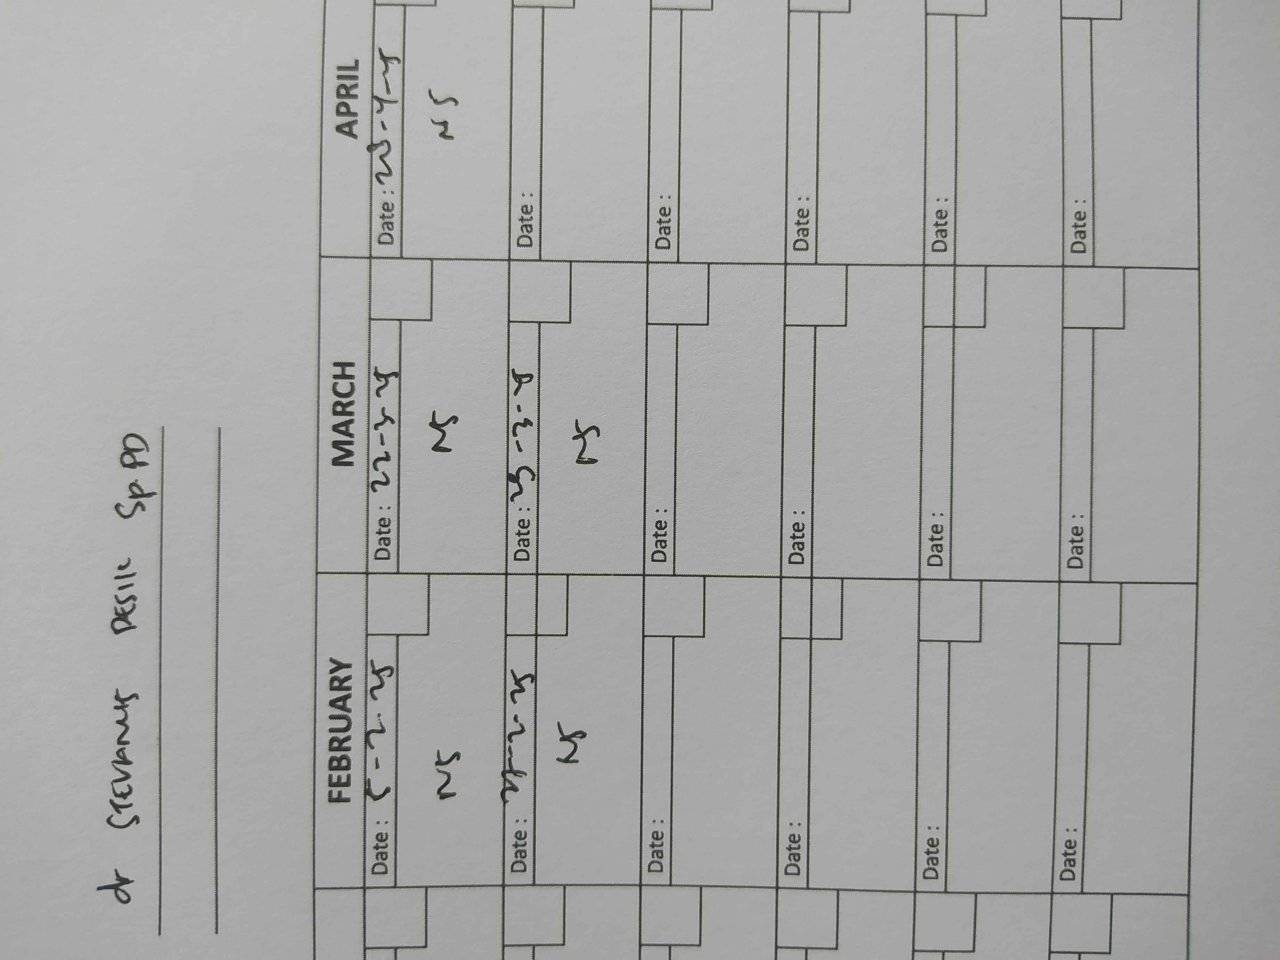 dr STEVANUS DESIK Sp.PD
FEBRUARY MARCH APRIL
Date : 5-2-25 Date : 22-3-25 Date : 28-4-25
NS NS NS
Date : 27-2-25 Date : 25-3-25 Date :
NS NS
Date : Date : Date :
Date : Date : Date :
Date : Date : Date :
Date : Date : Date :